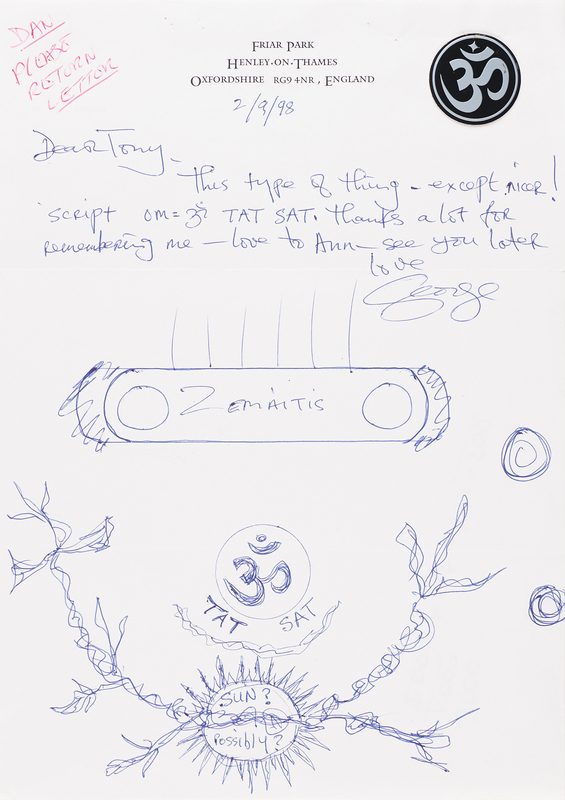 DAN
PLEASE
RETURN
LETTER
FRIAR PARK
HENLEY·ON·THAMES
OXFORDSHIRE RG9 4NR, ENGLAND
ॐ
2/9/98
Dear Tony –
This type of thing – except nicer!
script OM = ॐ TAT SAT. Thanks a lot for
remembering me – love to Ann – see you later
love
George
ZEMAITIS
ॐ
TAT SAT
SUN?
Possibly?